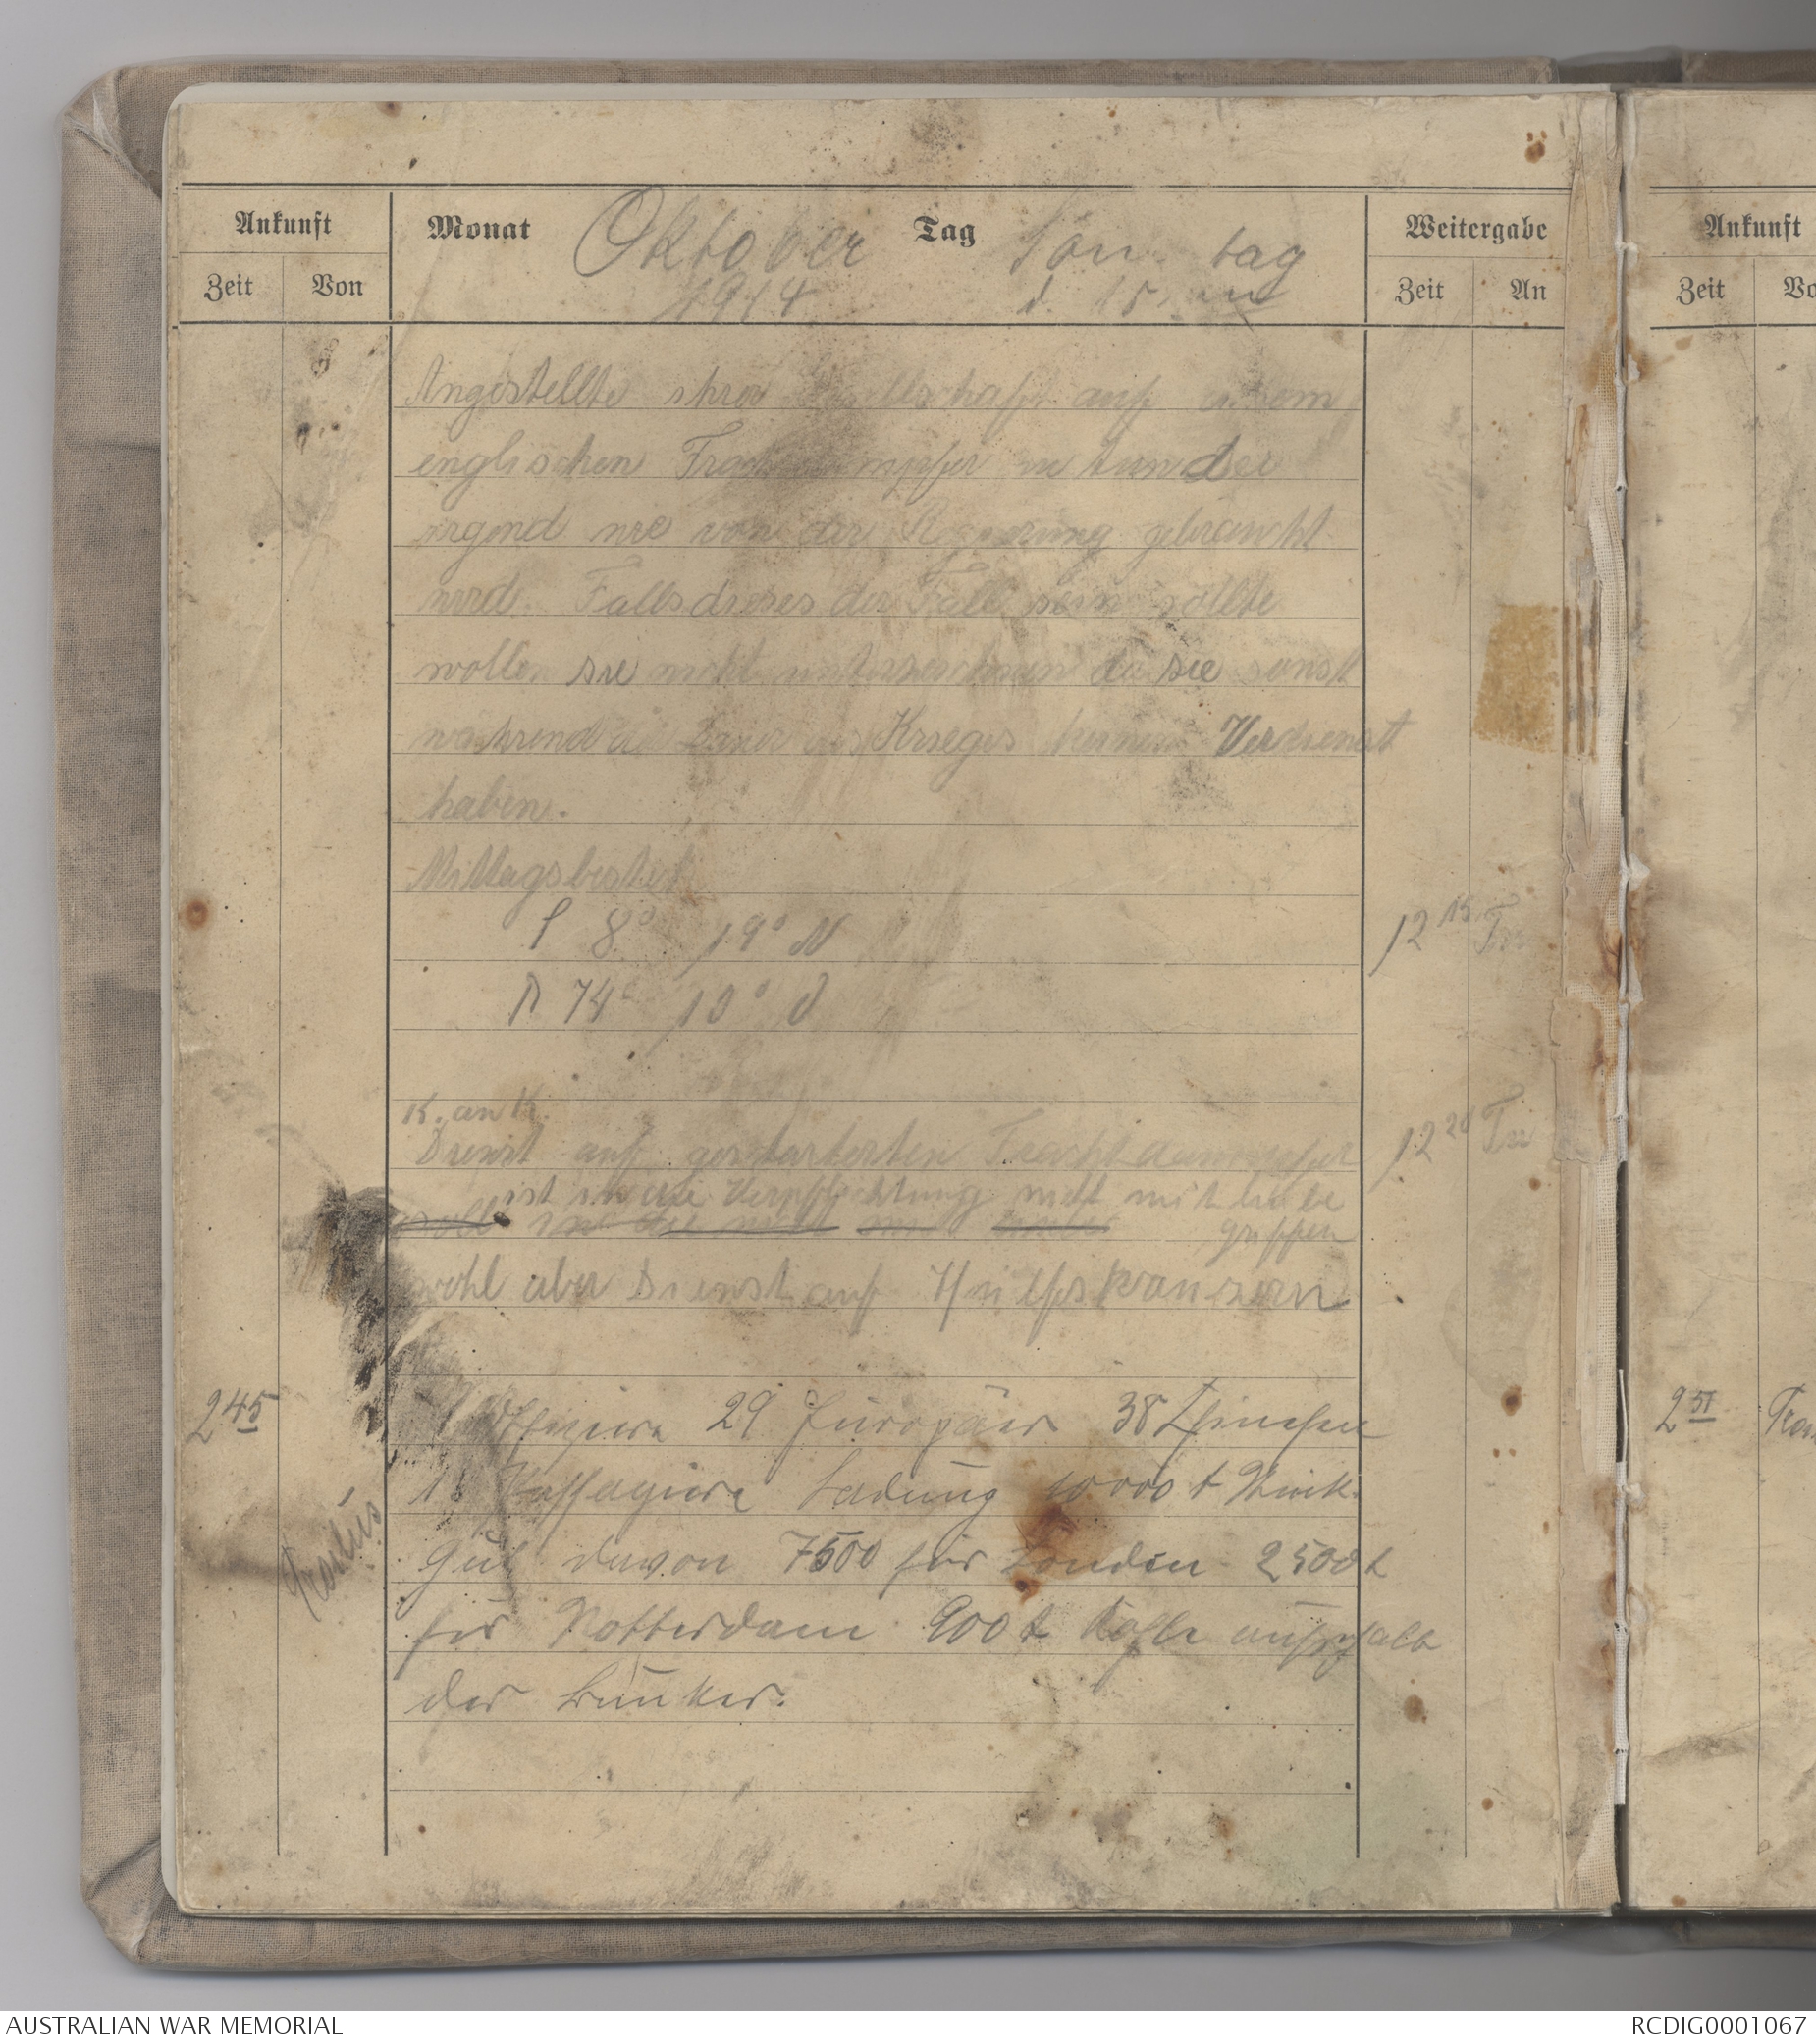 Ankunft
Monat Oktober Tag Sonntag
Weitergabe
Ankunft
Zeit Von
1914 d. 18.
Zeit An
Zeit
Angestellte ihrer Gesellschaft auf einem
englischen Frachtdampfer der
irgend wie von der Regierung gebraucht
wird. Falls dieses der Fall sein sollte
wollen sie nicht unterzeichnen da sie sonst
während der Dauer des Krieges keinen Verdienst
haben.
Mittagsbesteck
8° 19° N 12 15 Tr
74° 10° O
K. an K.
Dienst auf gecharterten Frachtdampfer 12 20 Tr
ist in die Verpflichtung nicht mit inbe
griffen
wohl aber Dienst auf Hilfskreuzern
2 45 Offiziere 29 Europäer 38 Chinesen 2 51
18 Passagiere Ladung 10000 t Stück
Troilus
Gut davon 7500 für London 2500 t
für Rotterdam 900 t Kohle außerhalb
der Bunker.
AUSTRALIAN WAR MEMORIAL
RCDIG0001067